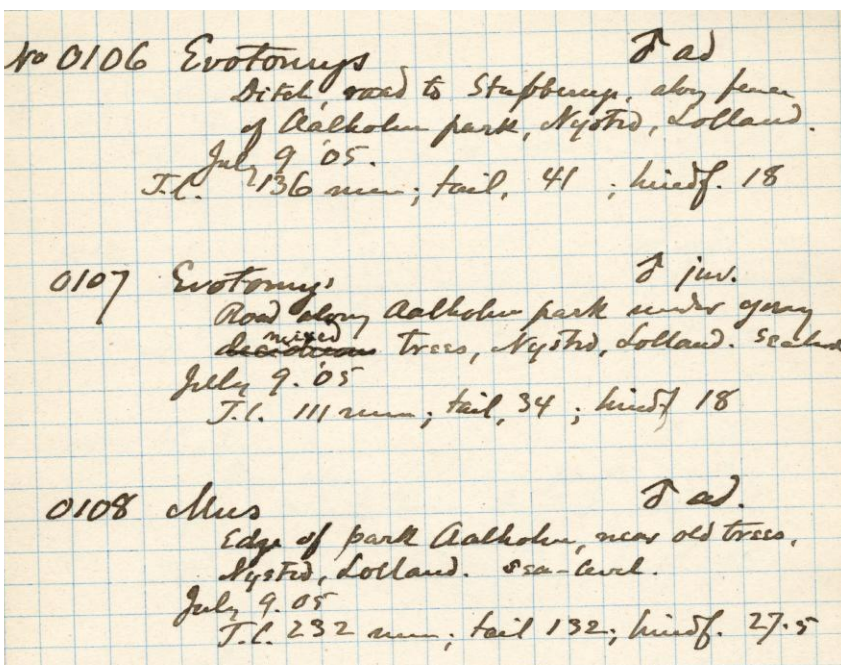 No 0106 Evotomys ♂ ad
Ditch, road to Stubberup, along fence
of Aalholm park, Nysted, Lolland.
July 9 '05.
T.l. 136 mm; tail, 41 ; hindf. 18
0107 Evotomys ♂ juv.
Road along Aalholm park under young
mixed
deciduous trees, Nysted, Lolland. Sealevel
July 9. '05
T.l. 111 mm; tail, 34 ; hindf 18
0108 Mus ♂ ad.
Edge of park Aalholm, near old trees,
Nysted, Lolland. sea-level.
July 9. 05
T.l. 232 mm; tail 132; hindf. 27.5